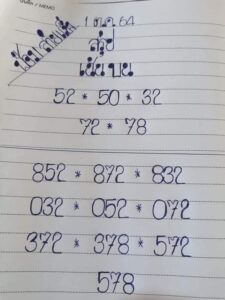 บันทึก / MEMO
1 ต.ค 64
สรุป
เน้น บน
52 * 50 * 32
72 * 78
852 * 872 * 832
032 * 052 * 072
372 * 378 * 572
578